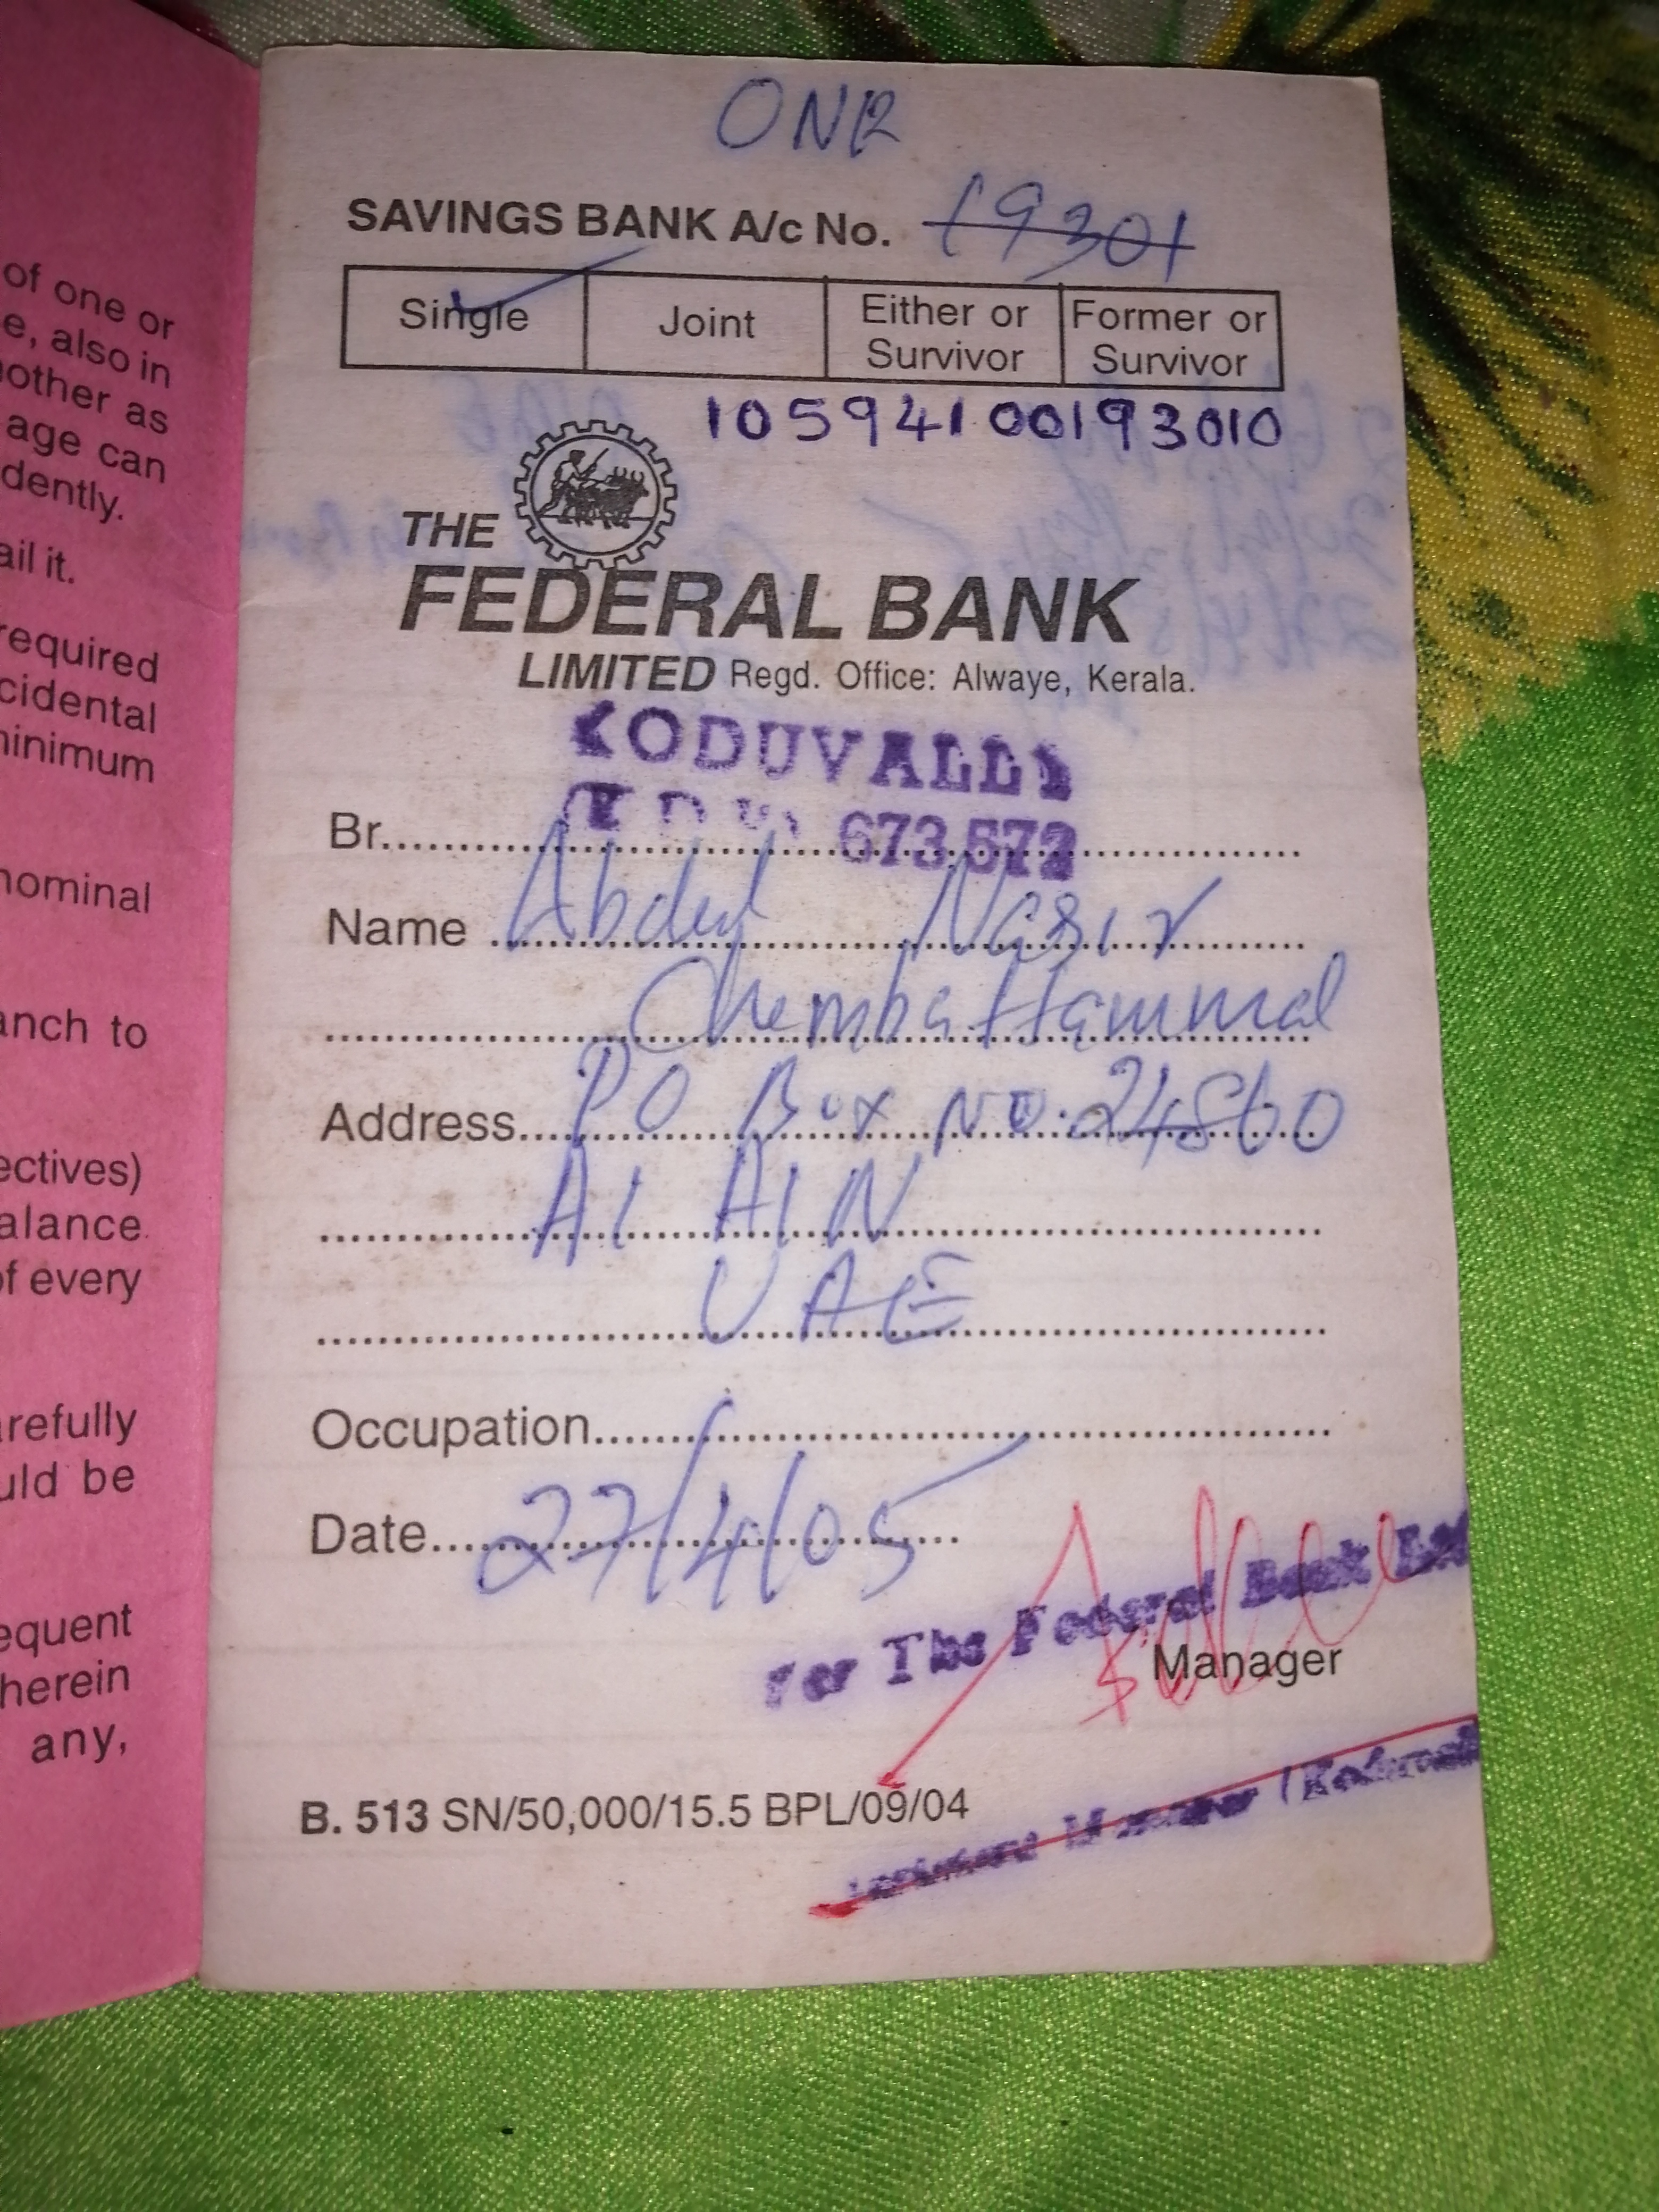 of one or
e, also in
other as
age can
dently.
ail it.
required
cidental
minimum
nominal
anch to
ectives)
alance
of every
arefully
uld be
equent
herein
any,
ONR
SAVINGS BANK A/c No. 19301
Single Joint Either or Survivor Former or Survivor
10594100193010
THE
FEDERAL BANK
LIMITED Regd. Office: Alwaye, Kerala.
KODUVALLY
Br. 673 572
Name Abdul Nasir
Chemba Hammal
Address PO Box No. 24860
Al AIN
UAE
Occupation
Date 27/4/05
For The Federal Bank Ltd
Manager
B. 513 SN/50,000/15.5 BPL/09/04
Manager (Koduvall